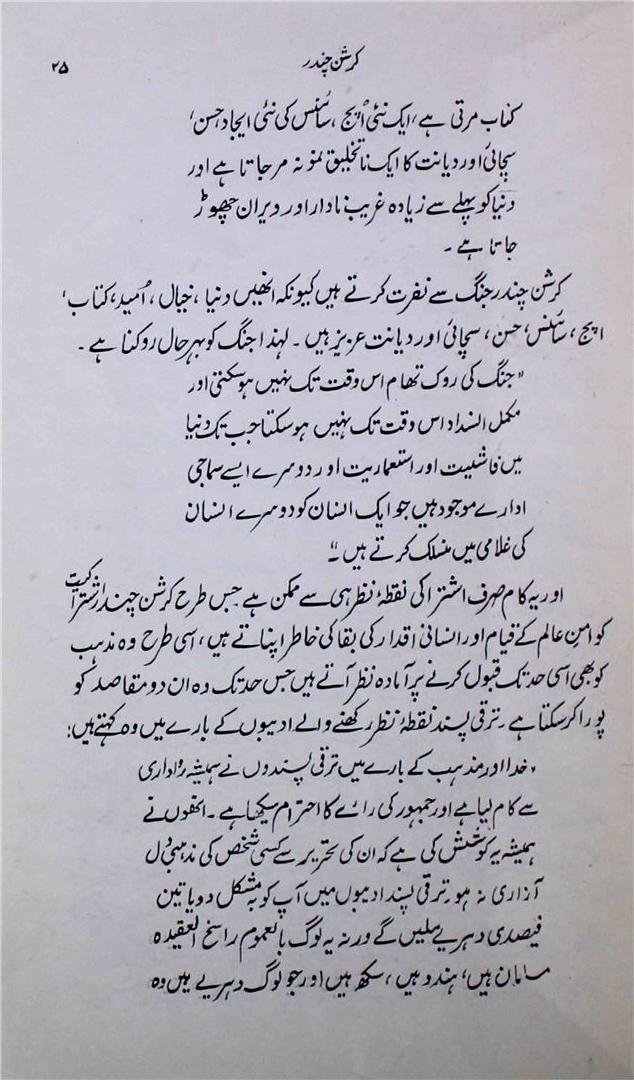 کرشن چندر ۲۵
کتاب مرتی ہے، ایک نئی اپج، سائنس کی نئی ایجاد، حسن،
سچائی اور دیانت کا ایک نا تخلیق نمونہ مر جاتا ہے اور
دنیا کو پہلے سے زیادہ غریب نادار اور ویران چھوڑ
جاتا ہے ۔
کرشن چندر جنگ سے نفرت کرتے ہیں کیونکہ انھیں دنیا، خیال، اُمید، کتاب،
اپج، سائنس، حسن، سچائی اور دیانت عزیز ہیں۔ لہٰذا جنگ کو بہر حال روکنا ہے۔
"جنگ کی روک تھام اس وقت تک نہیں ہو سکتی اور
مکمل انسداد اس وقت تک نہیں ہو سکتا جب تک دنیا
میں فاشیت اور استعماریت اور دوسرے ایسے سماجی
ادارے موجود ہیں جو ایک انسان کو دوسرے انسان
کی غلامی میں منسلک کرتے ہیں۔"
اور یہ کام صرف اشتراکی نقطۂ نظر ہی سے ممکن ہے۔ جس طرح کرشن چندر اشتراکیت
کو امنِ عالم کے قیام اور انسانی اقدار کی بقا کی خاطر اپناتے ہیں، اسی طرح وہ مذہب
کو بھی اسی حد تک قبول کرنے پر آمادہ نظر آتے ہیں جس حد تک وہ ان دو مقاصد کو
پورا کر سکتا ہے۔ ترقی پسند نقطۂ نظر رکھنے والے ادیبوں کے بارے میں وہ کہتے ہیں:
"خدا اور مذہب کے بارے میں ترقی پسندوں نے ہمیشہ رواداری
سے کام لیا ہے اور جمہور کی رائے کا احترام سیکھا ہے۔ انھوں نے
ہمیشہ یہ کوشش کی ہے کہ ان کی تحریر سے کسی شخص کی مذہبی دل
آزاری نہ ہو۔ ترقی پسند ادیبوں میں آپ کو بہ مشکل دو یا تین
فیصدی دہریے ملیں گے ورنہ یہ لوگ بالعموم راسخ العقیدہ
مسلمان ہیں، ہندو ہیں، سکھ ہیں اور جو لوگ دہریے ہیں وہ